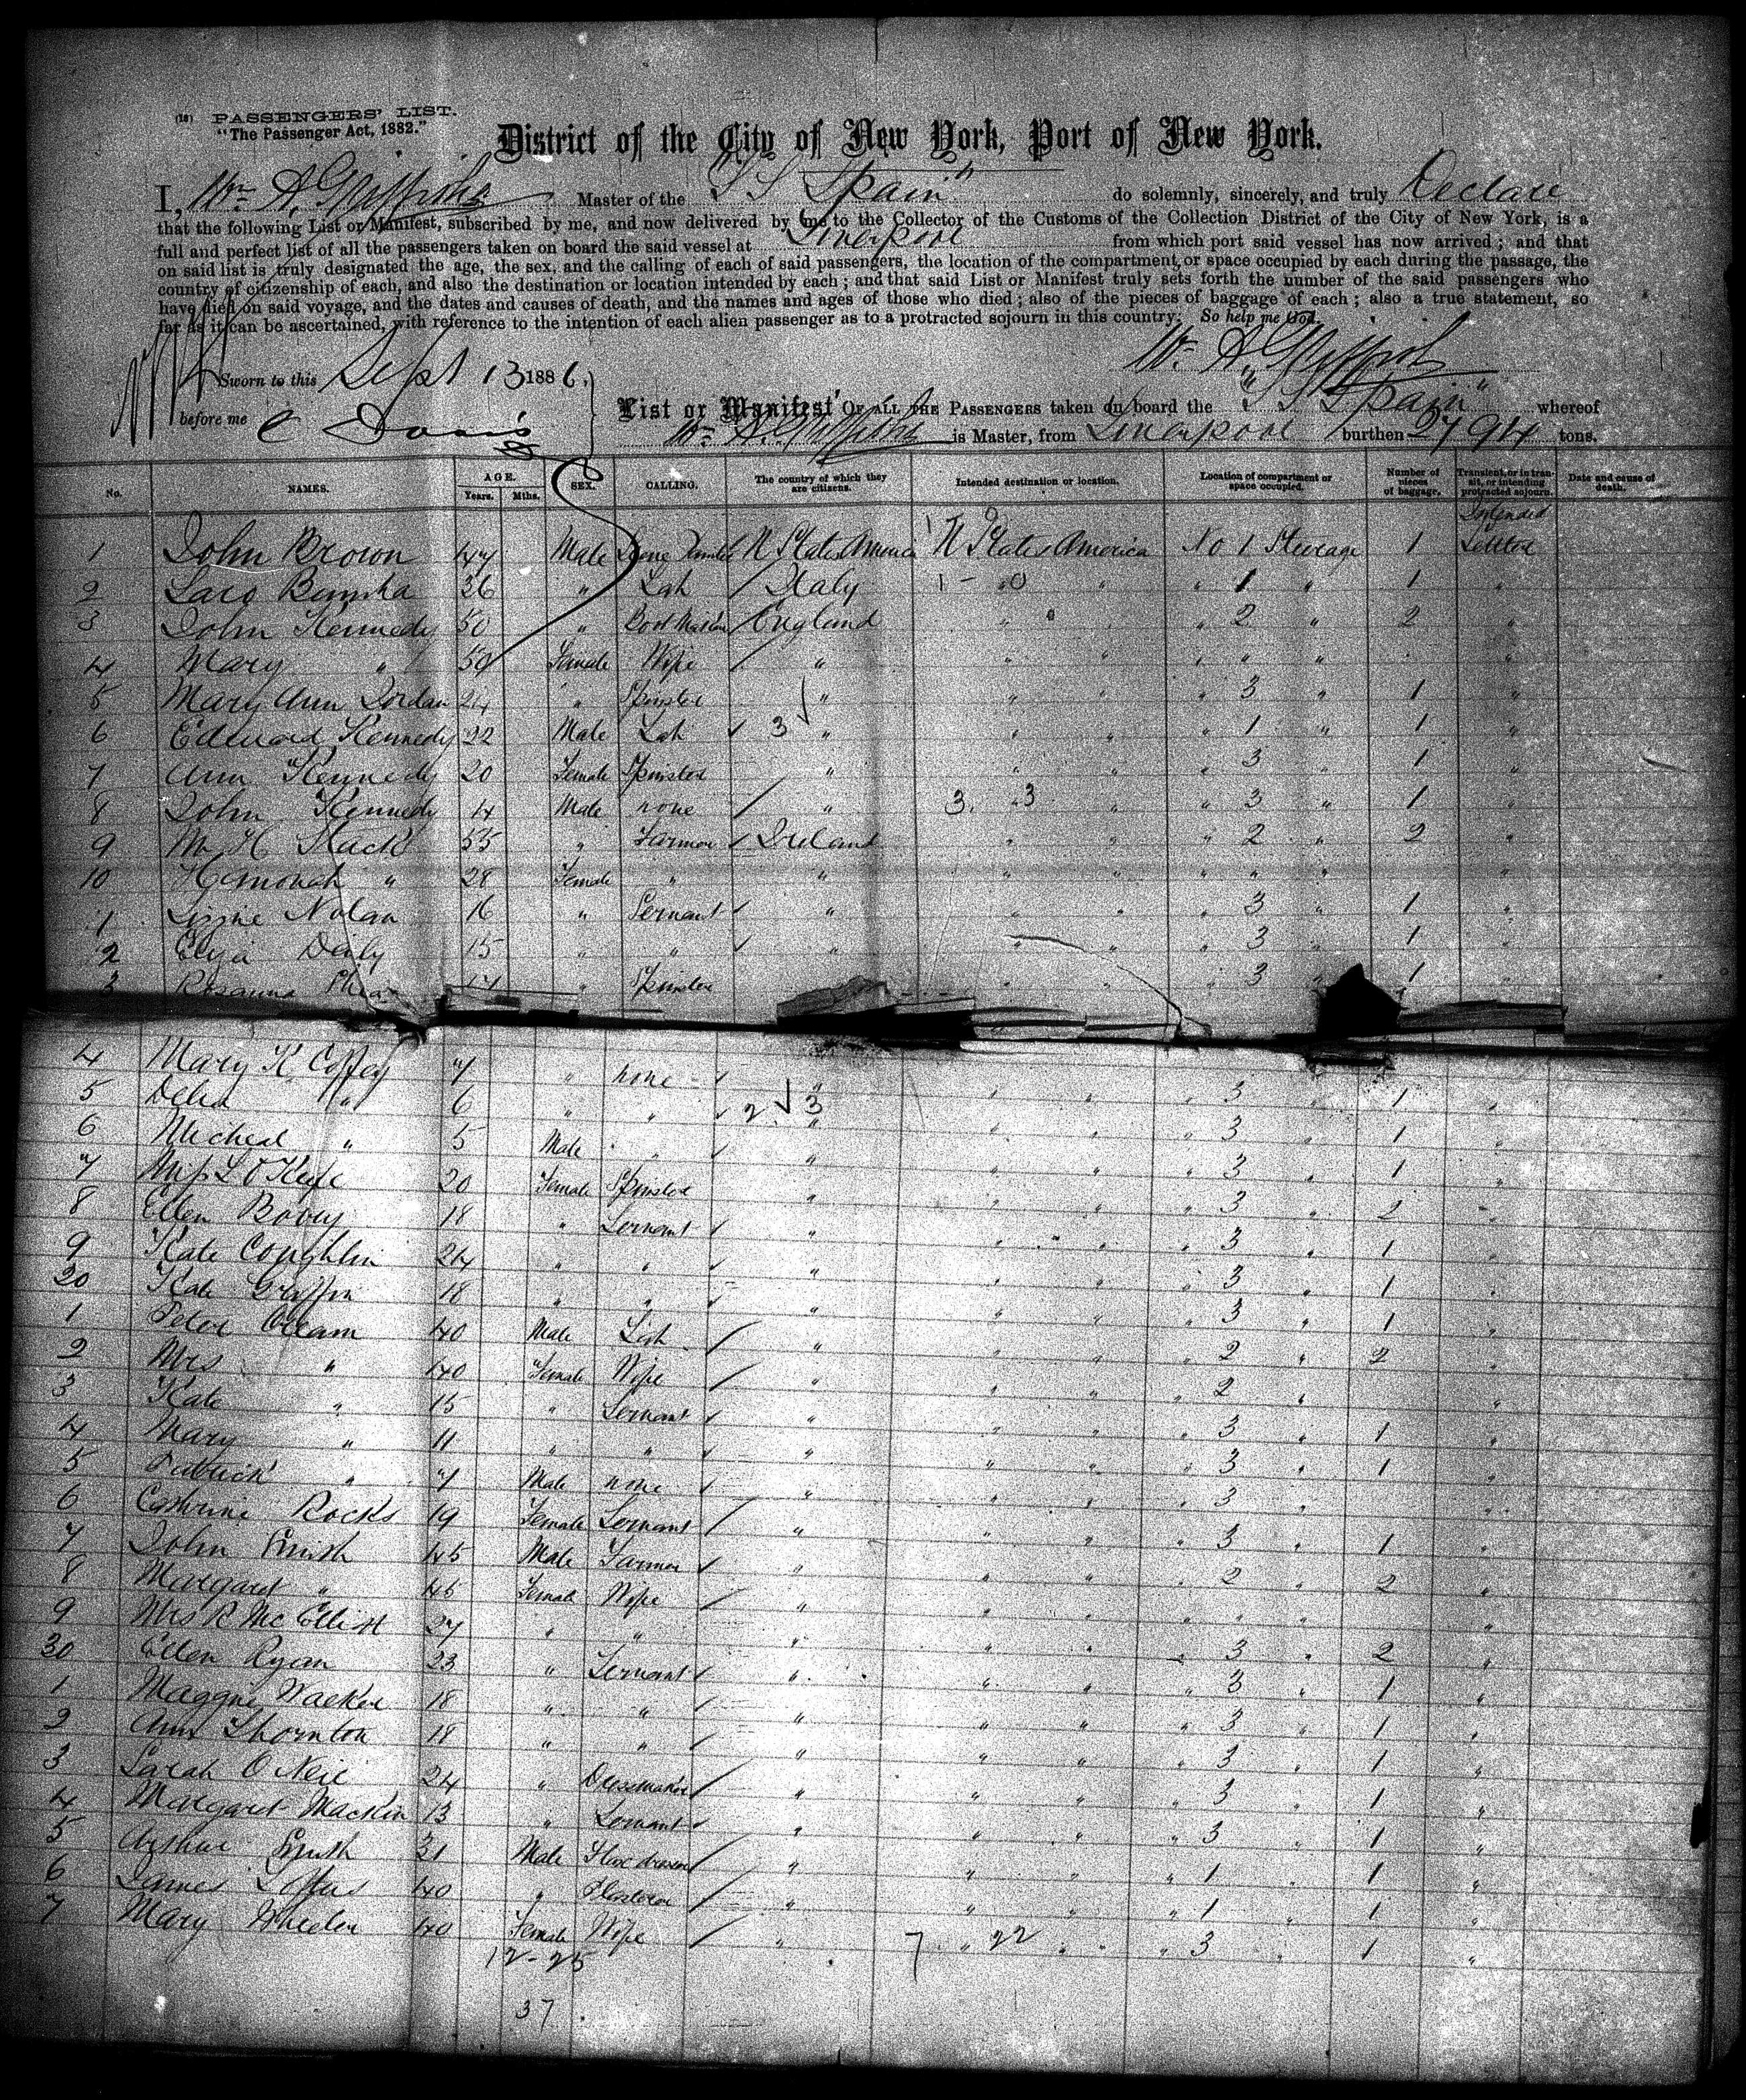 (18) PASSENGERS' LIST.
"The Passenger Act, 1882."
District of the City of New York, Port of New York.
I, Wm A. Griffiths Master of the "S S Spain" do solemnly, sincerely, and truly Declare
that the following List or Manifest, subscribed by me, and now delivered by me to the Collector of the Customs of the Collection District of the City of New York, is a
full and perfect list of all the passengers taken on board the said vessel at Liverpool from which port said vessel has now arrived; and that
on said list is truly designated the age, the sex, and the calling of each of said passengers, the location of the compartment or space occupied by each during the passage, the
country of citizenship of each, and also the destination or location intended by each; and that said List or Manifest truly sets forth the number of the said passengers who
have died on said voyage, and the dates and causes of death, and the names and ages of those who died; also of the pieces of baggage of each; also a true statement, so
far as it can be ascertained, with reference to the intention of each alien passenger as to a protracted sojourn in this country. So help me God.
Wm A. Griffiths
Sworn to this Sept 13 1886,
before me C Davis
List or Manifest OF ALL THE PASSENGERS taken on board the "S S Spain" whereof
Wm A. Griffiths is Master, from Liverpool burthen 2794 tons.
No. NAMES. AGE. Years. Mths. SEX. CALLING. The country of which they are citizens. Intended destination or location. Location of compartment or space occupied. Number of pieces of baggage. Transient, or in transit, or intending protracted sojourn. Date and cause of death.
1 John Brown 47 Male U States America U States America No 1 Steerage 1
2 36 " Lab Italy 1 - 0 " " 1 " 1 "
3 John Kennedy 50 " England " " " 2 " 2 "
4 Mary " 50 Female Wife " " " " " " "
5 Mary Ann Jordan 24 " Spinster " " " " 3 " 1 "
6 Edward Kennedy 22 Male Lab 3 " " " " 1 " 1 "
7 Ann Kennedy 20 Female Spinster " " " " 3 " 1 "
8 John Kennedy 14 Male none " 3. 3 " " 3 " 1 "
9 Slack 55 " Farmer Ireland " " " 2 " 2 "
10 " 28 Female " " " " " " " "
1 Lizzie Nolan 16 " Servant " " " " 3 " 1 "
2 Eliza Daily 15 " " " " " " 3 " 1 "
3 Rosanna " Spinster " " " 3 " 1 "
4 Mary K Coffey 7 " none " " " " 3 " 1 "
5 Delia " 6 " " 2 3 " " " " 3 " 1 "
6 Micheal " 5 Male " " " " " 3 " 1 "
7 Miss L O'Keefe 20 Female Spinster " " " " 3 " 2 "
8 Ellen 18 " Servant " " " " 3 " 1 "
9 Kate Coughlin 24 " " " " " " 3 " 1 "
20 Kate Griffin 18 " " " " " " 3 " 1 "
1 Peter 40 Male Lab " " " " 2 " 2 "
2 Mrs " 40 Female Wife " " " " 2 " "
3 Kate " 15 " Servant " " " " 3 " 1 "
4 Mary " 11 " " " " " " 3 " 1 "
5 Patrick " 7 Male none " " " " 3 " "
6 Cathrine Rocks 19 Female Servant " " " " 3 " 1 "
7 John Smith 45 Male Farmer " " " " 2 " 2 "
8 Margaret " 45 Female Wife " " " " " " "
9 Mrs R McElliott 27 " " " " " " 3 " 2 "
30 Ellen Ryan 23 " Servant " " " " 3 " 1 "
1 Maggie Walker 18 " " " " " " 3 " 1 "
2 Ann Thornton 18 " " " " " " 3 " 1 "
3 Sarah O'Neil 24 " Dressmaker " " " " 3 " 1 "
4 Margaret Mackin 13 " Servant " " " " 3 " 1 "
5 Arthur Smith 31 Male " " " " 1 " 1 "
6 James Loftus 40 " Plasterer " " " " 1 " 1 "
7 Mary Wheeler 40 Female Wife " 7 " 22 " " " 3 " 1 "
12-25
37